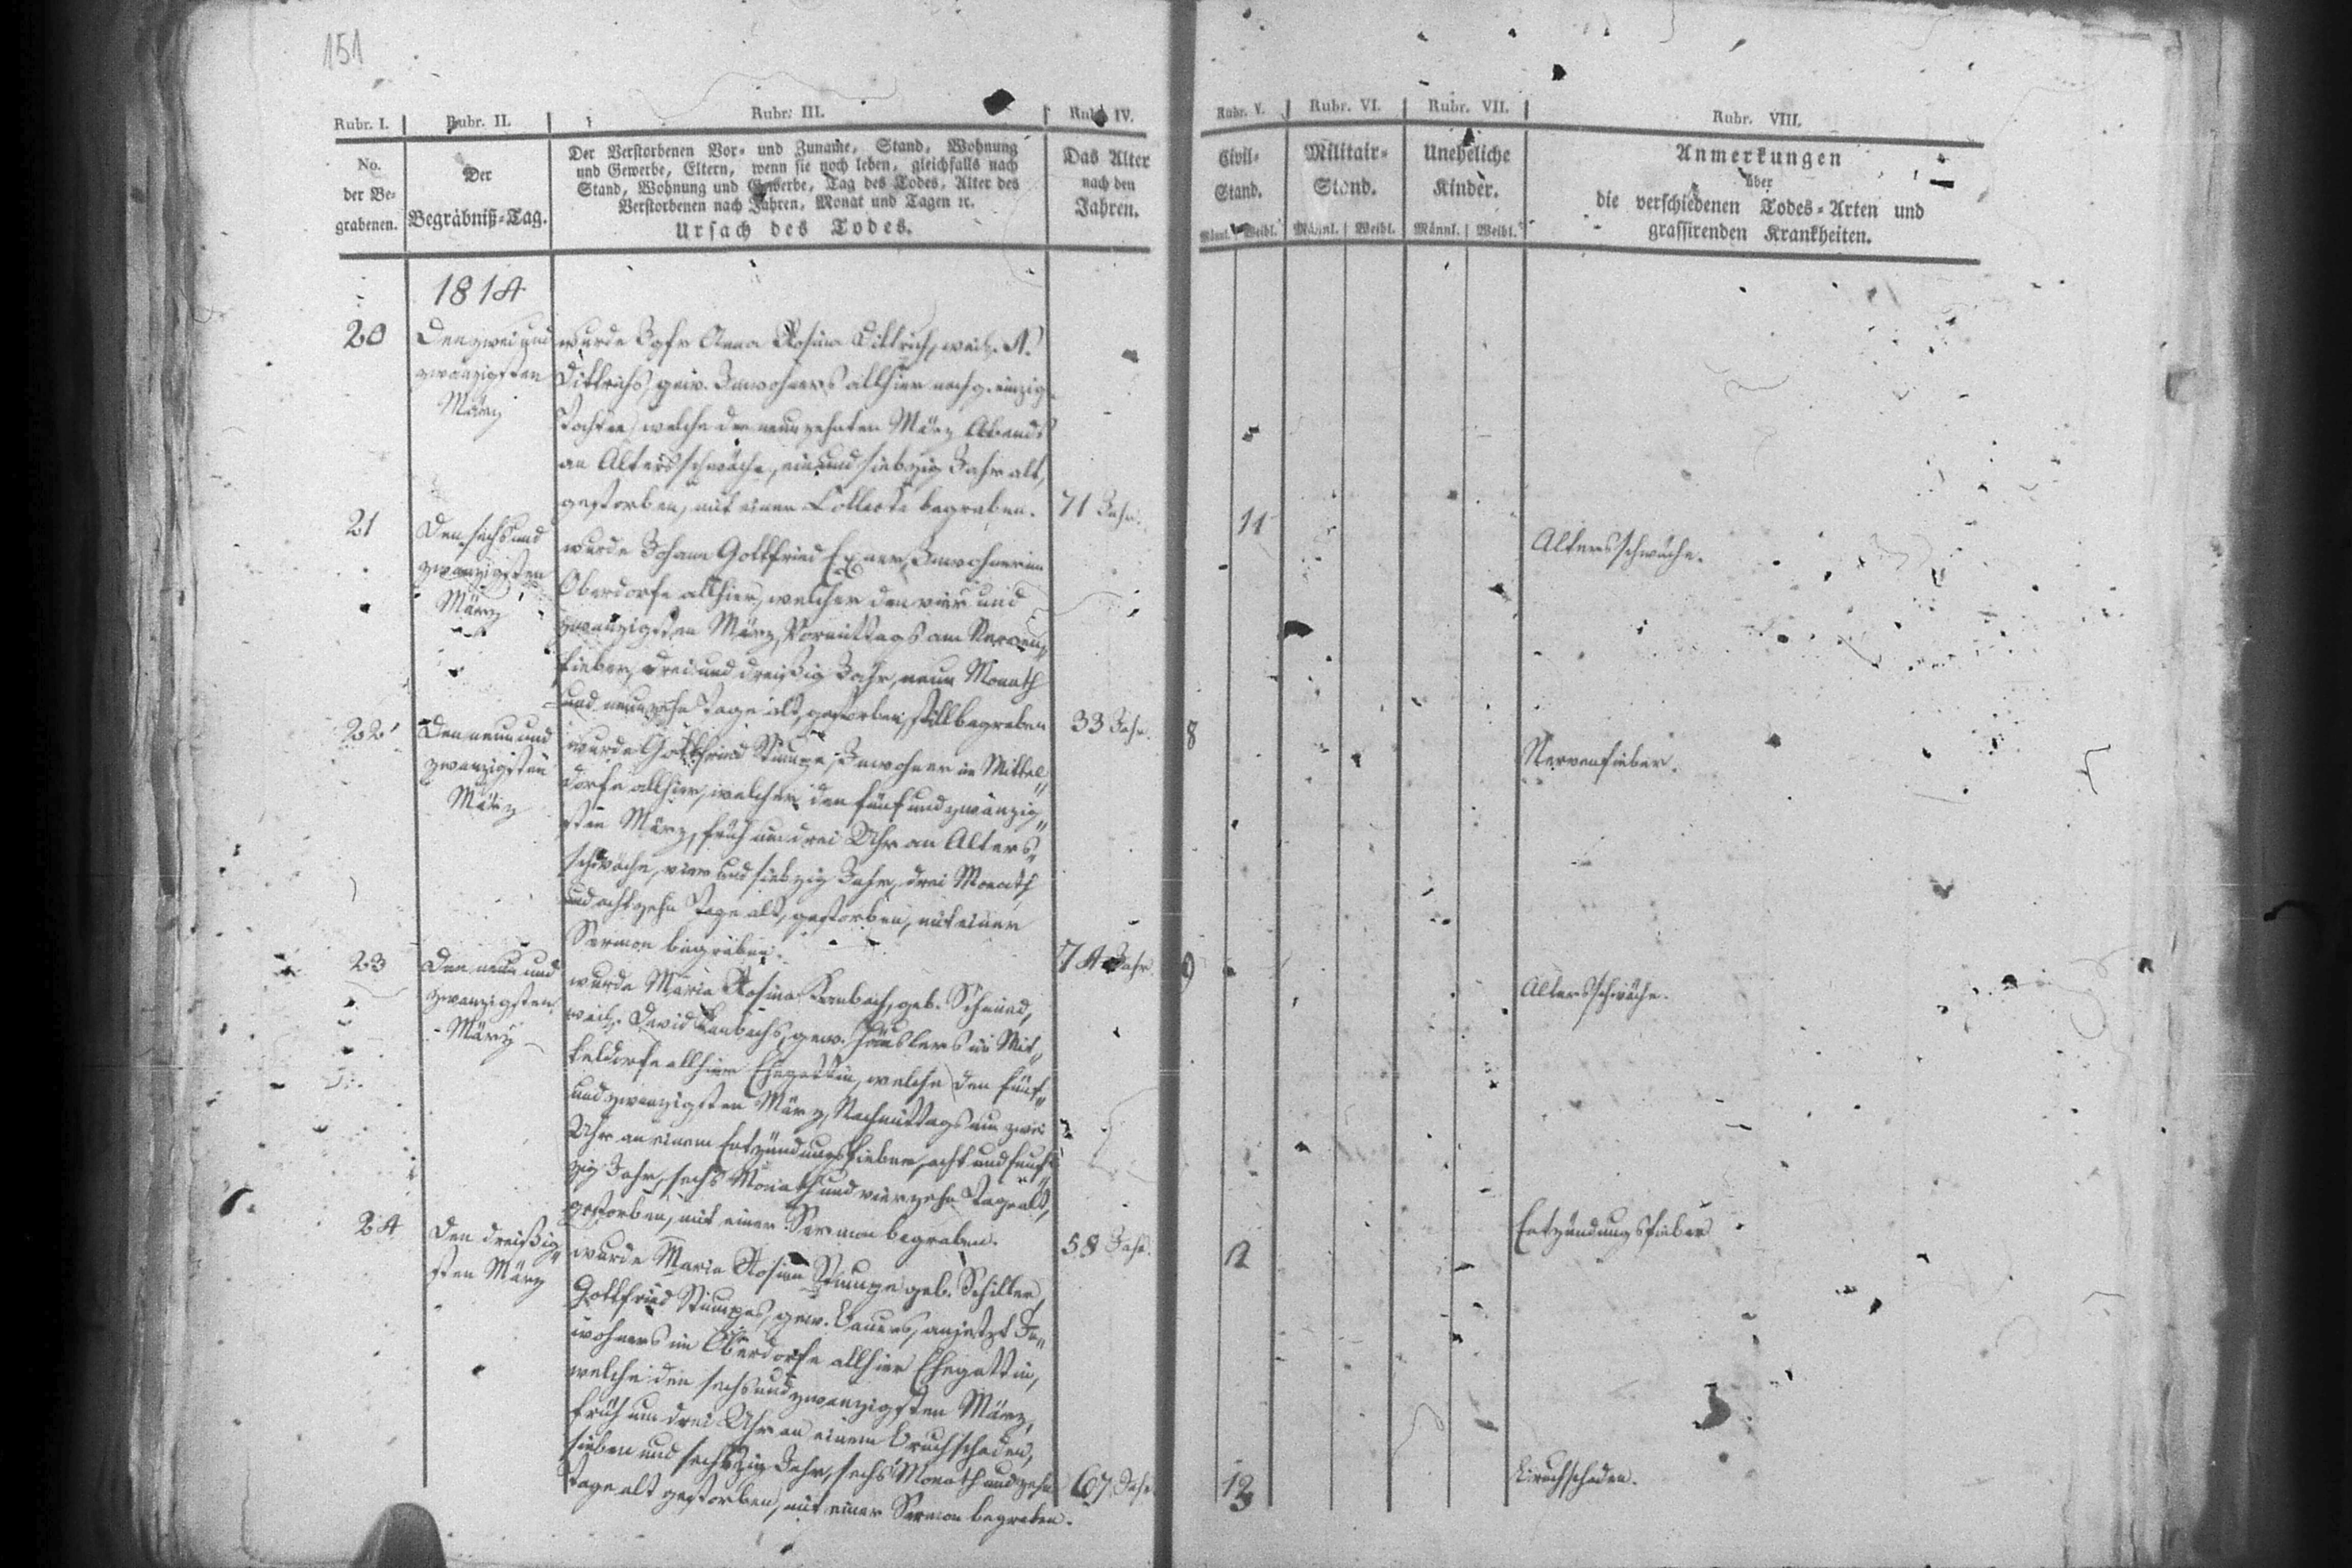 151
Rubr. I.
Rubr. II.
Rubr. III.
Rubr. IV.
Rubr. V.
Rubr. VI.
Rubr. VII.
Rubr. VIII.
No.
der Be-
grabenen.
Der
Begräbniß-Tag.
Der Verstorbenen Vor- und Zuname, Stand, Wohnung
und Gewerbe, Eltern, wenn sie noch leben, gleichfalls nach
Stand, Wohnung und Gewerbe, Tag des Todes, Alter des
Verstorbenen nach Jahren, Monat und Tagen ꝛc.
Ursach des Todes.
Das Alter
nach den
Jahren.
Civil-
Stand.
Männl. Weibl.
Militair-
Stand.
Männl. Weibl.
Uneheliche
Kinder.
Männl. Weibl.
Anmerkungen
über
die verschiedenen Todes-Arten und
grassirenden Krankheiten.
1814
20
Den zwei und
zwanzigsten
März
wurde Igfr Anna Rosina Dittrich, weil. A.
Dittrichs, gew. Inwohners allhier nachg. einzig.
Tochter, welche den neunzehnten März Abends
an Altersschwäche, ein und siebzig Jahr alt,
gestorben, mit einer Collecte begraben.
71 Jahr.
11
Altersschwäche.
21
Den sechs und
zwanzigsten
März
wurde Johann Gottfried Exner, Inwohner im
Oberdorfe allhier, welcher den vier und
zwanzigsten März, Vormittags am Nerven„
fieber, drei und dreißig Jahr, neun Monath
und neunzehn Tage alt, gestorben, still begraben
33 Jahr.
8
Nervenfieber.
22
Den neun und
zwanzigsten
März
wurde Gottfried Stumpe, Inwohner in Mittel„
dorfe allhier, welcher den fünf und zwanzig„
sten März, früh um drei Uhr an Alters„
schwäche, vier und siebzig Jahr, drei Monath
und achtzehn Tage alt, gestorben, mit einer
Sermon begraben.
74 Jahr.
9
Altersschwäche.
23
Den neun und
zwanzigsten
März
wurde Maria Rosina Kambach, geb. Schmied,
weil. David Kambachs, gew. Häuslers im Mit„
teldorfe allhier Ehegattin, welche den fünf„
und zwanzigsten März, Nachmittags um zwei
Uhr an einem Entzündungsfieber, acht und funf„
zig Jahr, sechs Monath und vierzehn Tage alt,
gestorben, mit einer Sermon begraben.
58 Jahr.
12
Entzündungsfieber
24
Den dreißig„
sten März
wurde Maria Rosina Stumpe geb. Schiller,
Gottfried Stumpes, gew. Bauers, anjetzt In„
wohners im Oberdorfe allhier Ehegattin,
welche den sechs und zwanzigsten März,
früh um drei Uhr an einem Bruchschaden,
sieben und sechszig Jahr, sechs Monath und zehn
Tage alt gestorben, mit einer Sermon begraben.
67 Jahr.
13
Bruchschaden.